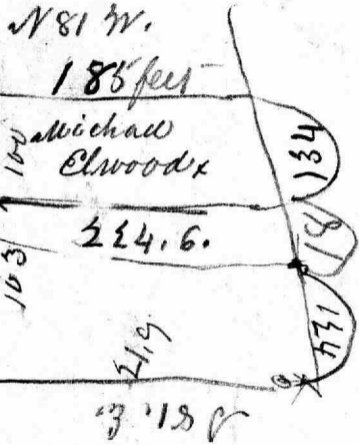 N 81 W.
185 feet
100
Michael
Elwood x
134
224.6.
18
103
124
219
N 81 E.